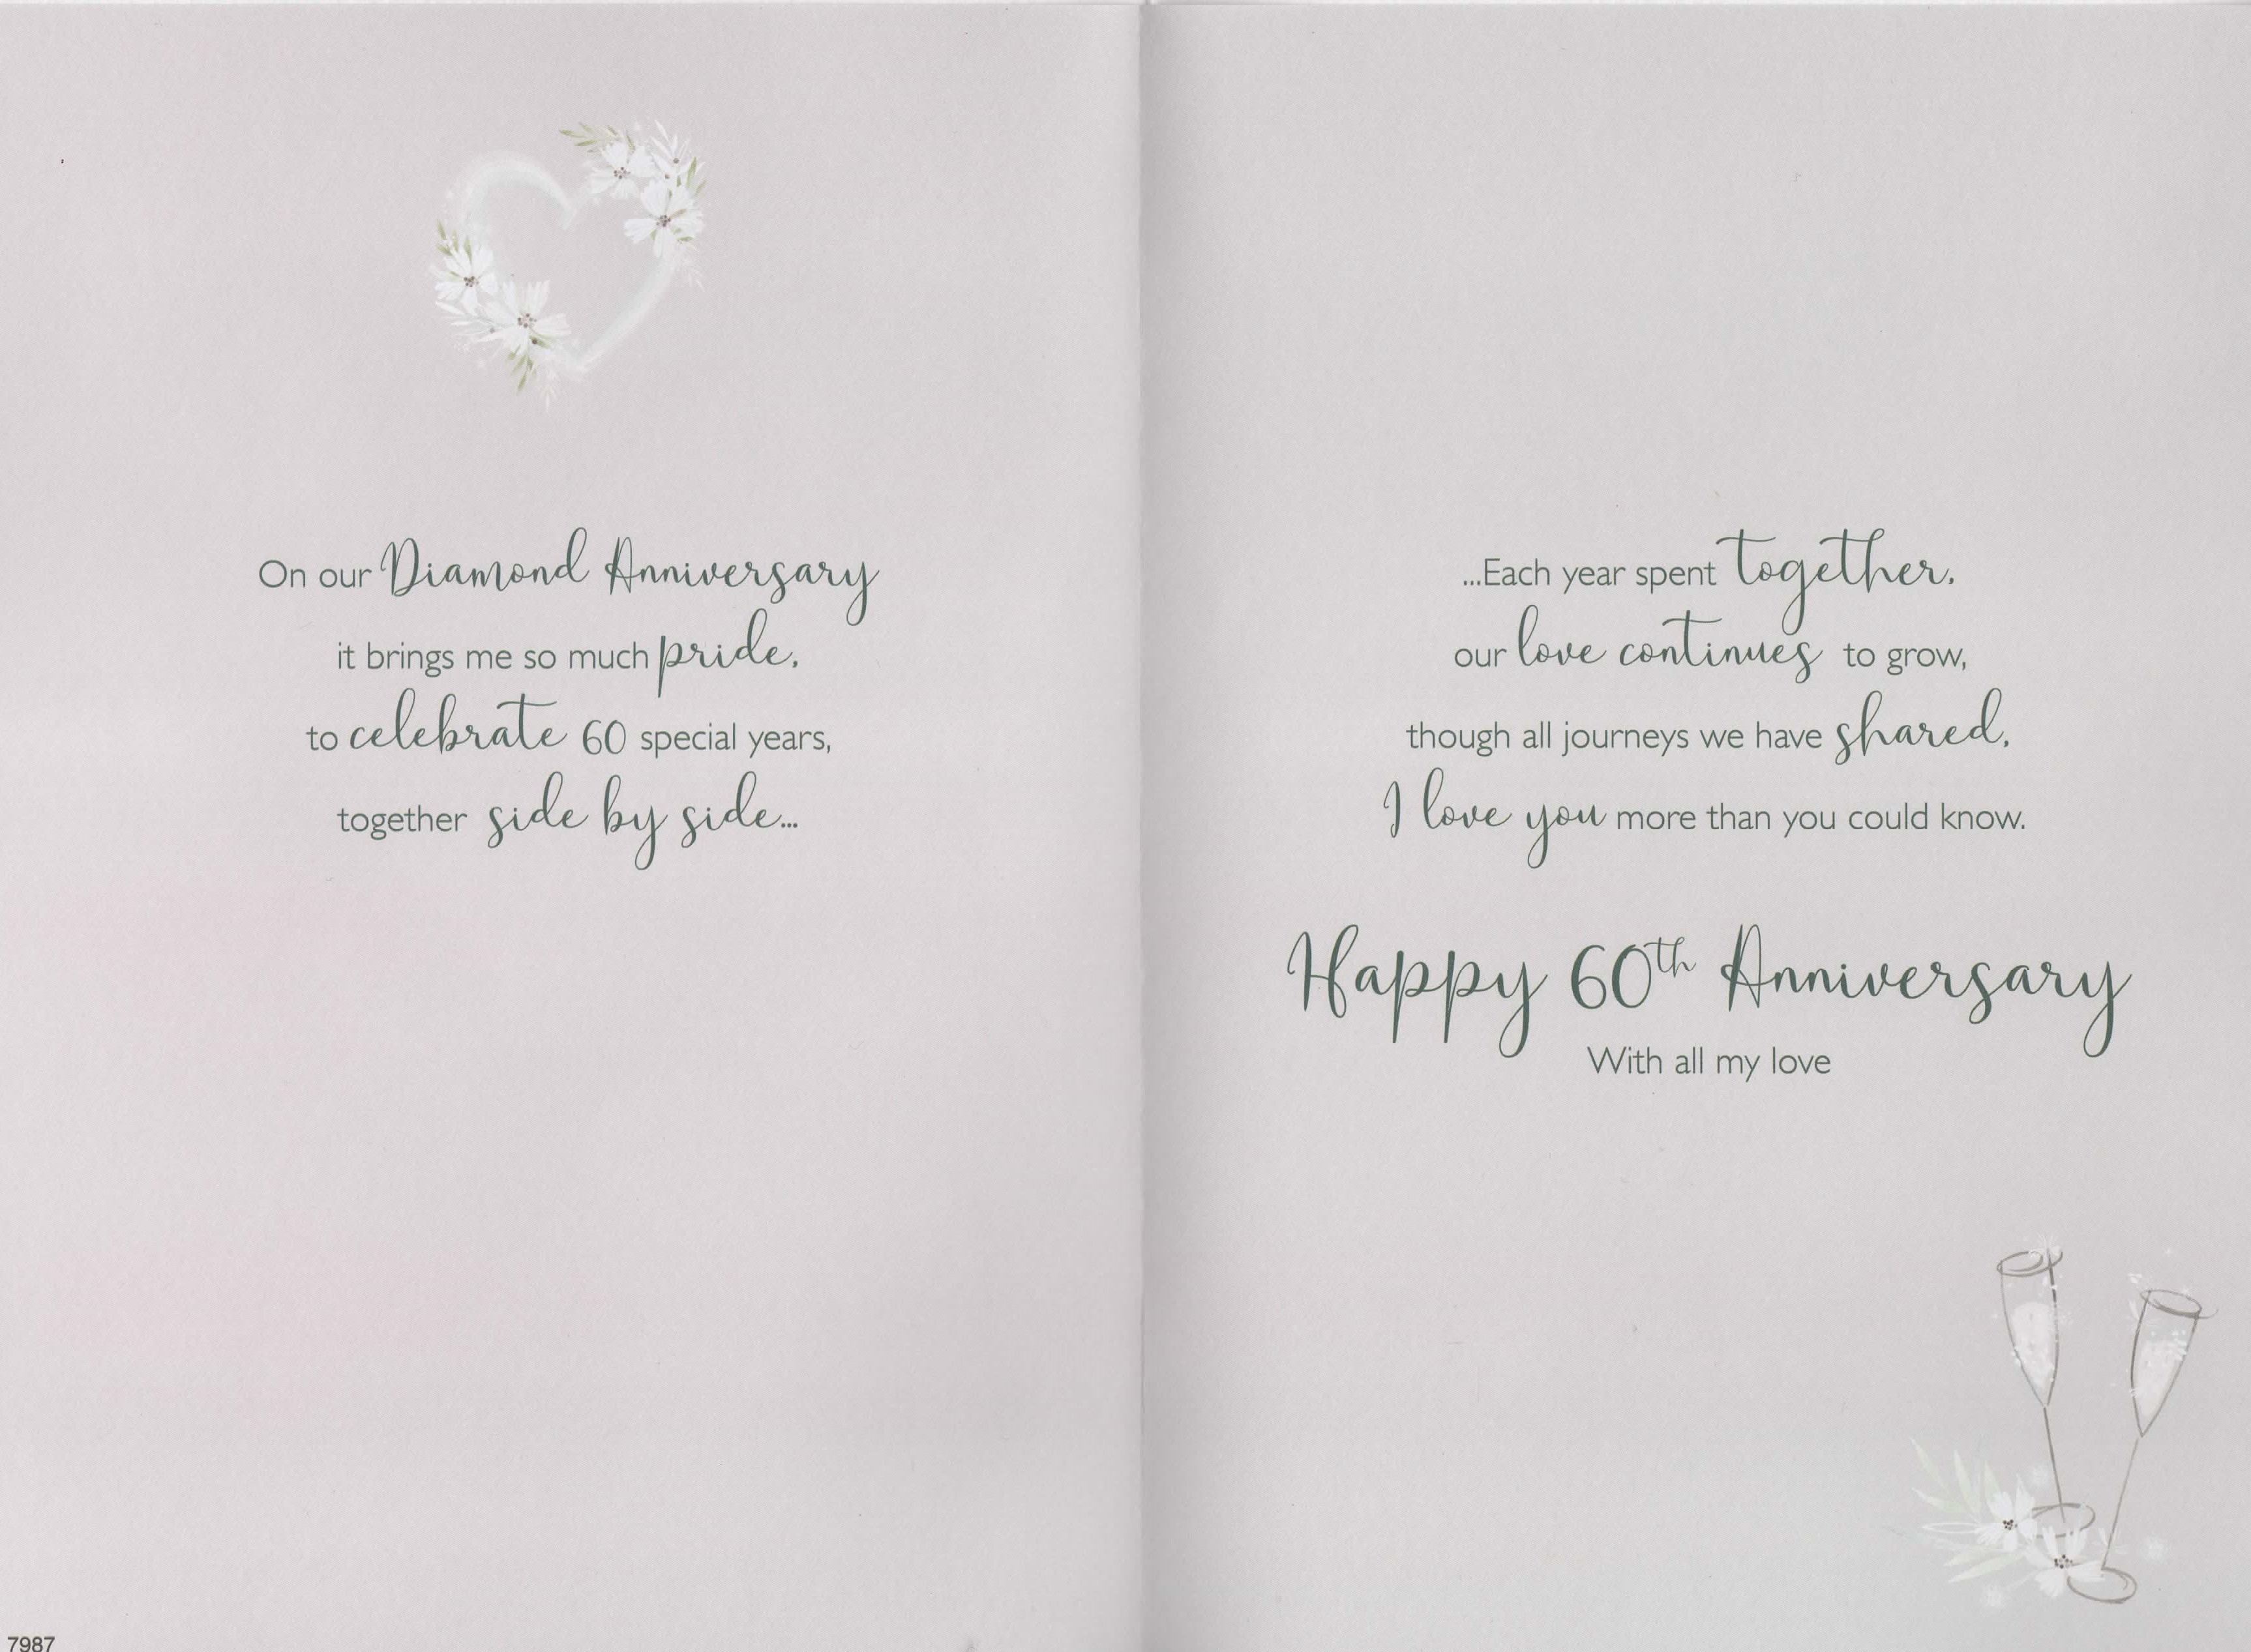 On our Diamond Anniversary
it brings me so much pride,
to celebrate 60 special years,
together side by side...
...Each year spent together,
our love continues to grow,
though all journeys we have shared,
I love you more than you could know.
Happy 60th Anniversary
With all my love
7987